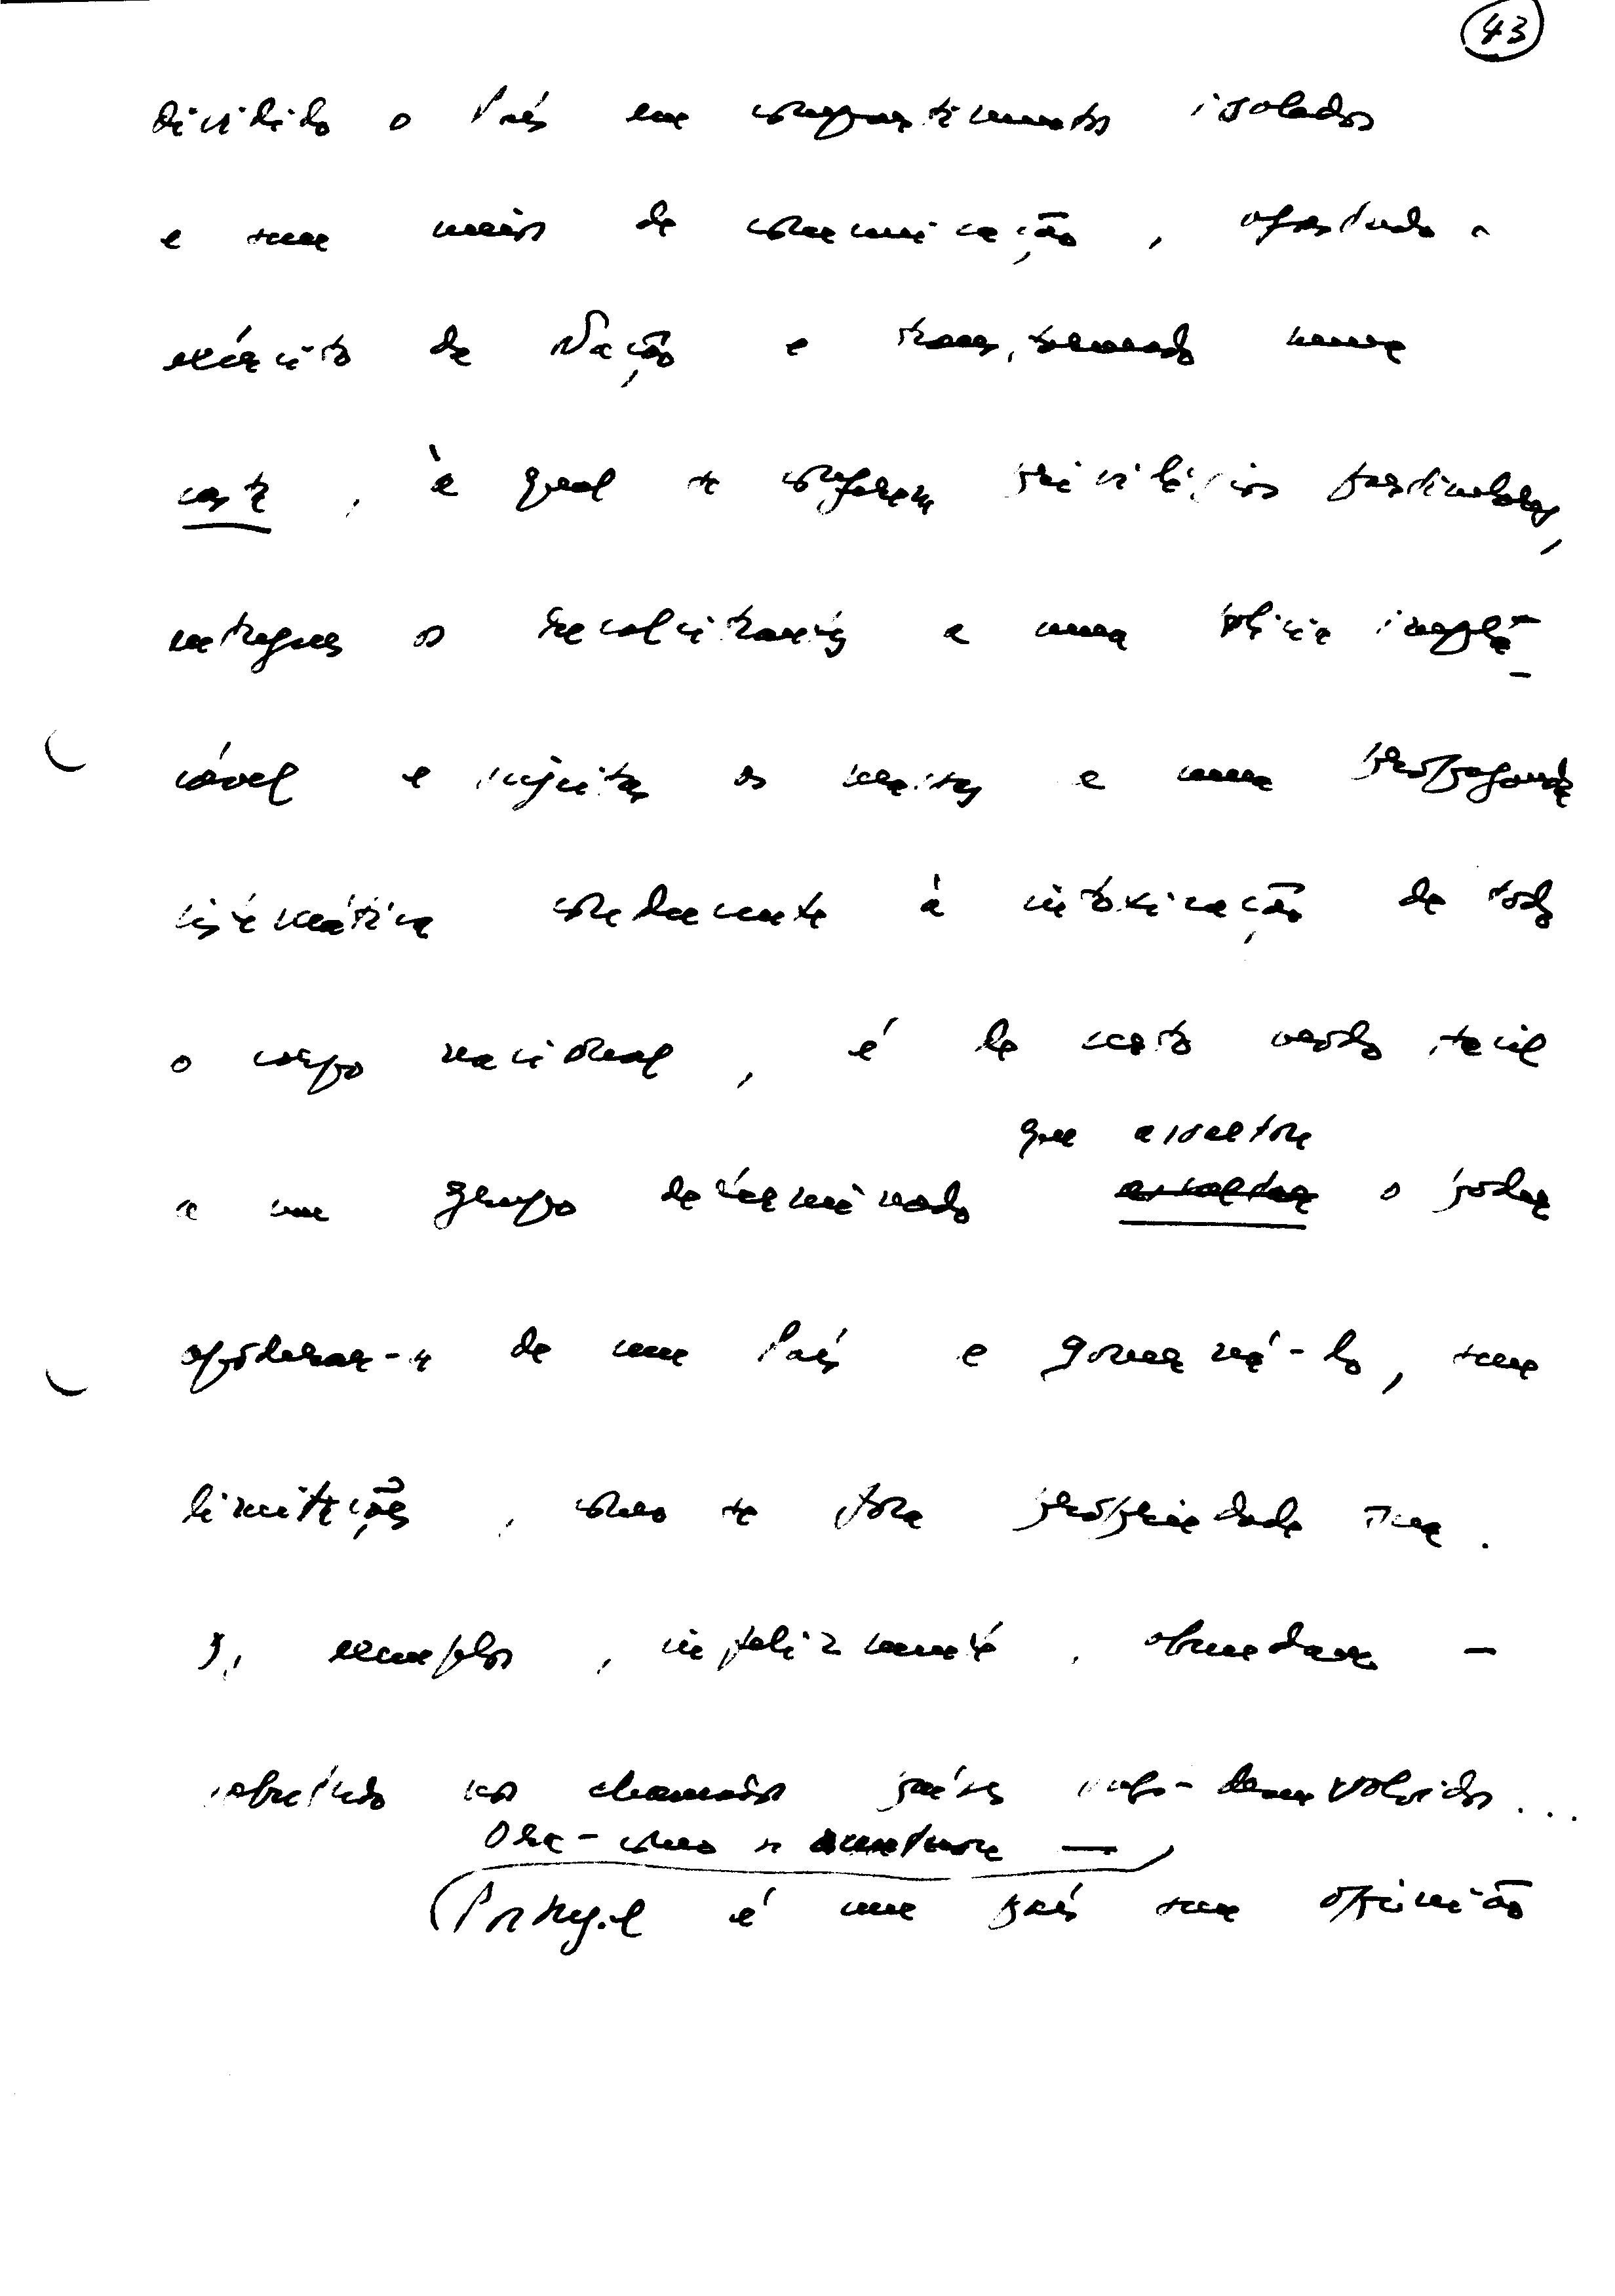 43
dividido o País em compartimentos isolados
e sem meios de comunicação, afastado o
exército da Nação e transformado numa
casta, à qual se conferem privilégios particulares,
entregues os recalcitrantes a uma polícia impla-
cável e sujeitos os restantes a uma propaganda
sistemática conducente à intoxicação de todo
o corpo nacional, é de certo modo fácil
que assaltou
a um grupo determinado assaltar o poder
apoderar-se de um País e governá-lo, sem
limitações, como se fora propriedade sua.
Os exemplos, infelizmente, abundam -
sobretudo nos chamados países sub-desenvolvidos...
Ora - como se acentuou —
Portugal é um país sem opinião